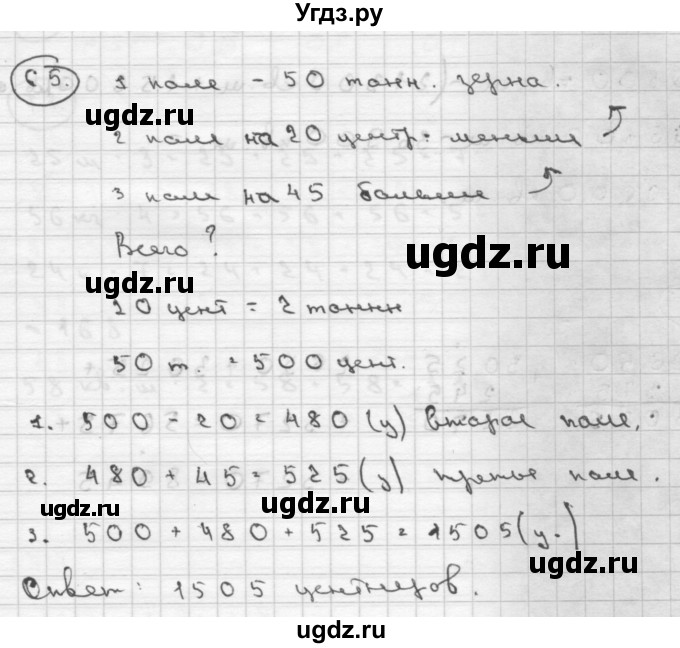 Угдз.ру
65. 1 поле - 50 тонн. зерна.
ugdz.ru
2 поле на 20 центр. меньше
3 поле на 45 больше
Всего?
ugdz.ru
ugdz.ru
20 цент = 2 тоннн
50 т. = 500 цент.
1. 500 - 20 = 480 (ц) второе поле.
2. 480 + 45 = 525 (ц) третье поле.
ugdz.ru
ugdz.ru
3. 500 + 480 + 525 = 1505 (ц.)
ugdz.ru
Ответ: 1505 центнеров.
ugdz.ru